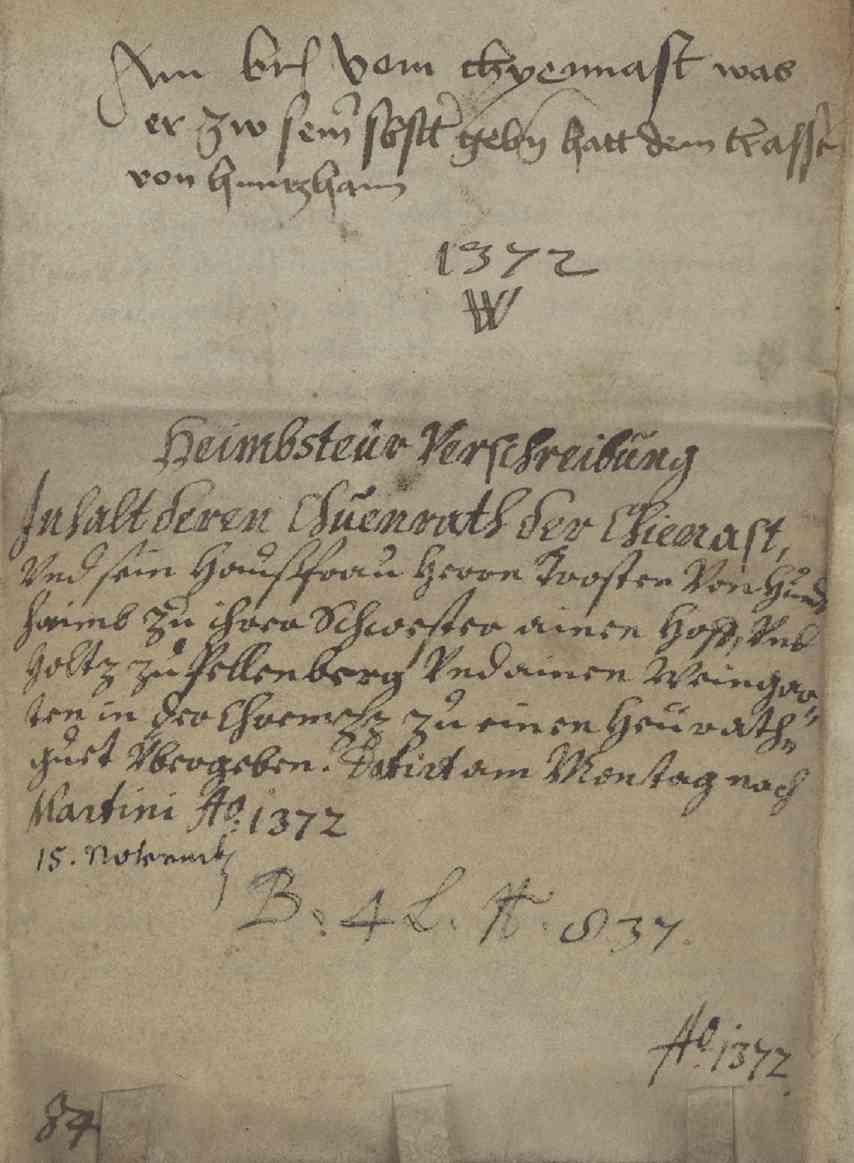 Am brf vom chyennast was
er zw seiner swest geben hatt dem trasst
von huntzhaim
1372
W
Heimbsteür Verschreibung
Inhalt deren Chuenrath der Chienast,
Vnd sein Haußfrau Herrn Trosten Von Hund
haimb zu ihrer Schwester ainen Hoff, Vnd
Holtz zu Pellenberg Vnd ainen Weingar„
ten in der Chremß zu einen Heürath„
guet Vbergeben. Datirt am Montag nach
Martini Ao. 1372
15. Novemb
B: 4 L. N. 837.
Ao. 1372.
84